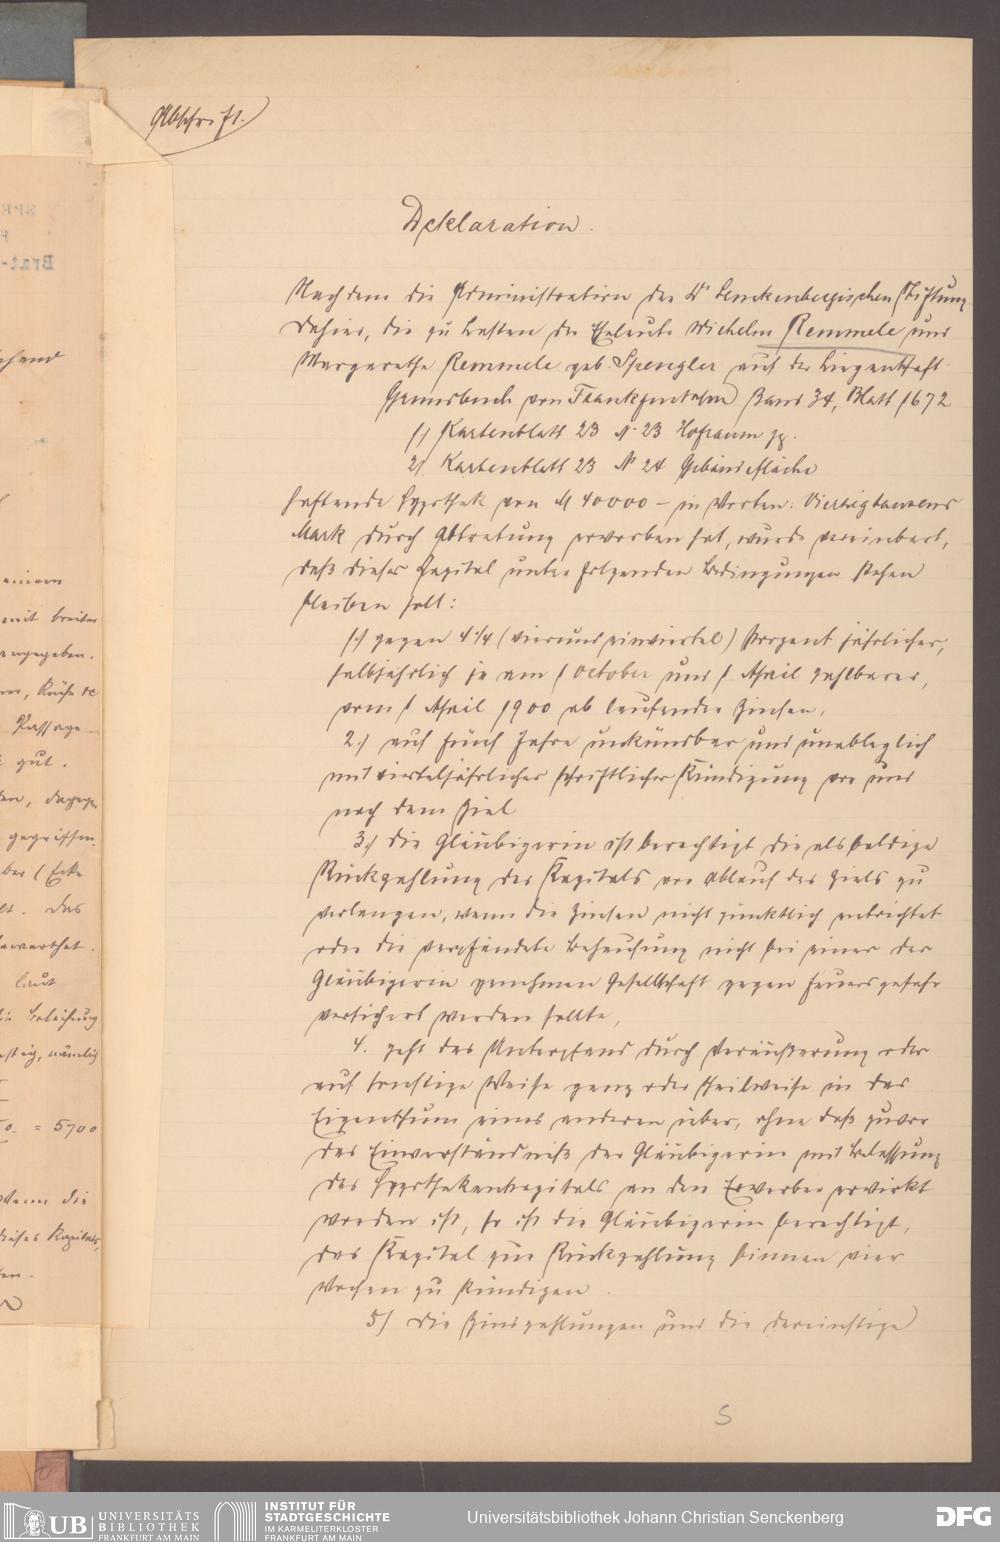 Abschrift.
Deklaration.
Nachdem die Administration der Dr Senckenbergischen Stiftung
dahier, die zu Lasten der Eheleute Wilhelm Remmele und
Margarethe Remmele geb. Spengler auf der Liegenschaft
Grundbuch von Frankfurt a/m Band 34, Blatt 1672
1) Kartenblatt 23 No 23 Hofraum pp.
2) Kartenblatt 23 No 24 Gebäudefläche
haftende Hypothek von M 40000 – in Worten: Vierzigtausend
Mark durch Abtretung erworben hat, wurde vereinbart,
daß dieses Capital unter folgenden Bedingungen stehen
bleiben soll:
1.) gegen 4 1/4 (vierundeinviertel) Prozent jährlicher,
halbjährlich je am 1 October und 1 April zahlbarer,
vom 1 April 1900 ab laufender Zinsen,
2.) auf fünf Jahre unkündbar und unableglich
mit vierteljährlicher schriftlicher Kündigung vor und
nach dem Ziel
3.) die Gläubigerin ist berechtigt die alsbaldige
Rückzahlung des Kapitals vor Ablauf des Ziels zu
verlangen, wenn die Zinsen nicht pünktlich entrichtet
oder die verpfändete Behausung nicht bei einer der
Gläubigerin genehmen Gesellschaft gegen Feuersgefahr
versichert werden sollte,
4. geht das Unterpfand durch Veräußerung oder
auf sonstige Weise ganz oder theilweise in das
Eigenthum eines anderen über, ohne daß zuvor
das Einverständniß der Gläubigerin mit Belassung
des Hypothekenkapitals an den Erwerber erwirkt
worden ist, so ist die Gläubigerin berechtigt,
das Kapital zur Rückzahlung binnen vier
Wochen zu kündigen.
5) Die Zinszahlungen und die dereinstige
5
einem
mit breiter
angegeben.
Küche
Passage
gut.
Ecke
das
laut
nämlich
= 5700
Wenn die
dieses Kapitals,
UB UNIVERSITÄTS
BIBLIOTHEK
FRANKFURT AM MAIN
INSTITUT FÜR
STADTGESCHICHTE
IM KARMELITERKLOSTER
FRANKFURT AM MAIN
Universitätsbibliothek Johann Christian Senckenberg
DFG